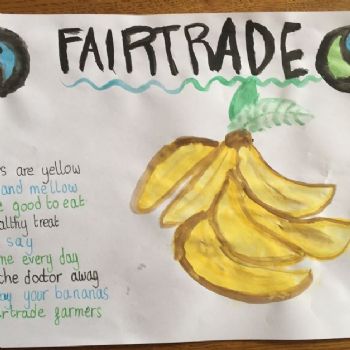 FAIRTRADE
s are yellow
and mellow
good to eat
lthy treat
say
me every day
the doctor away
your bananas
rtrade farmers